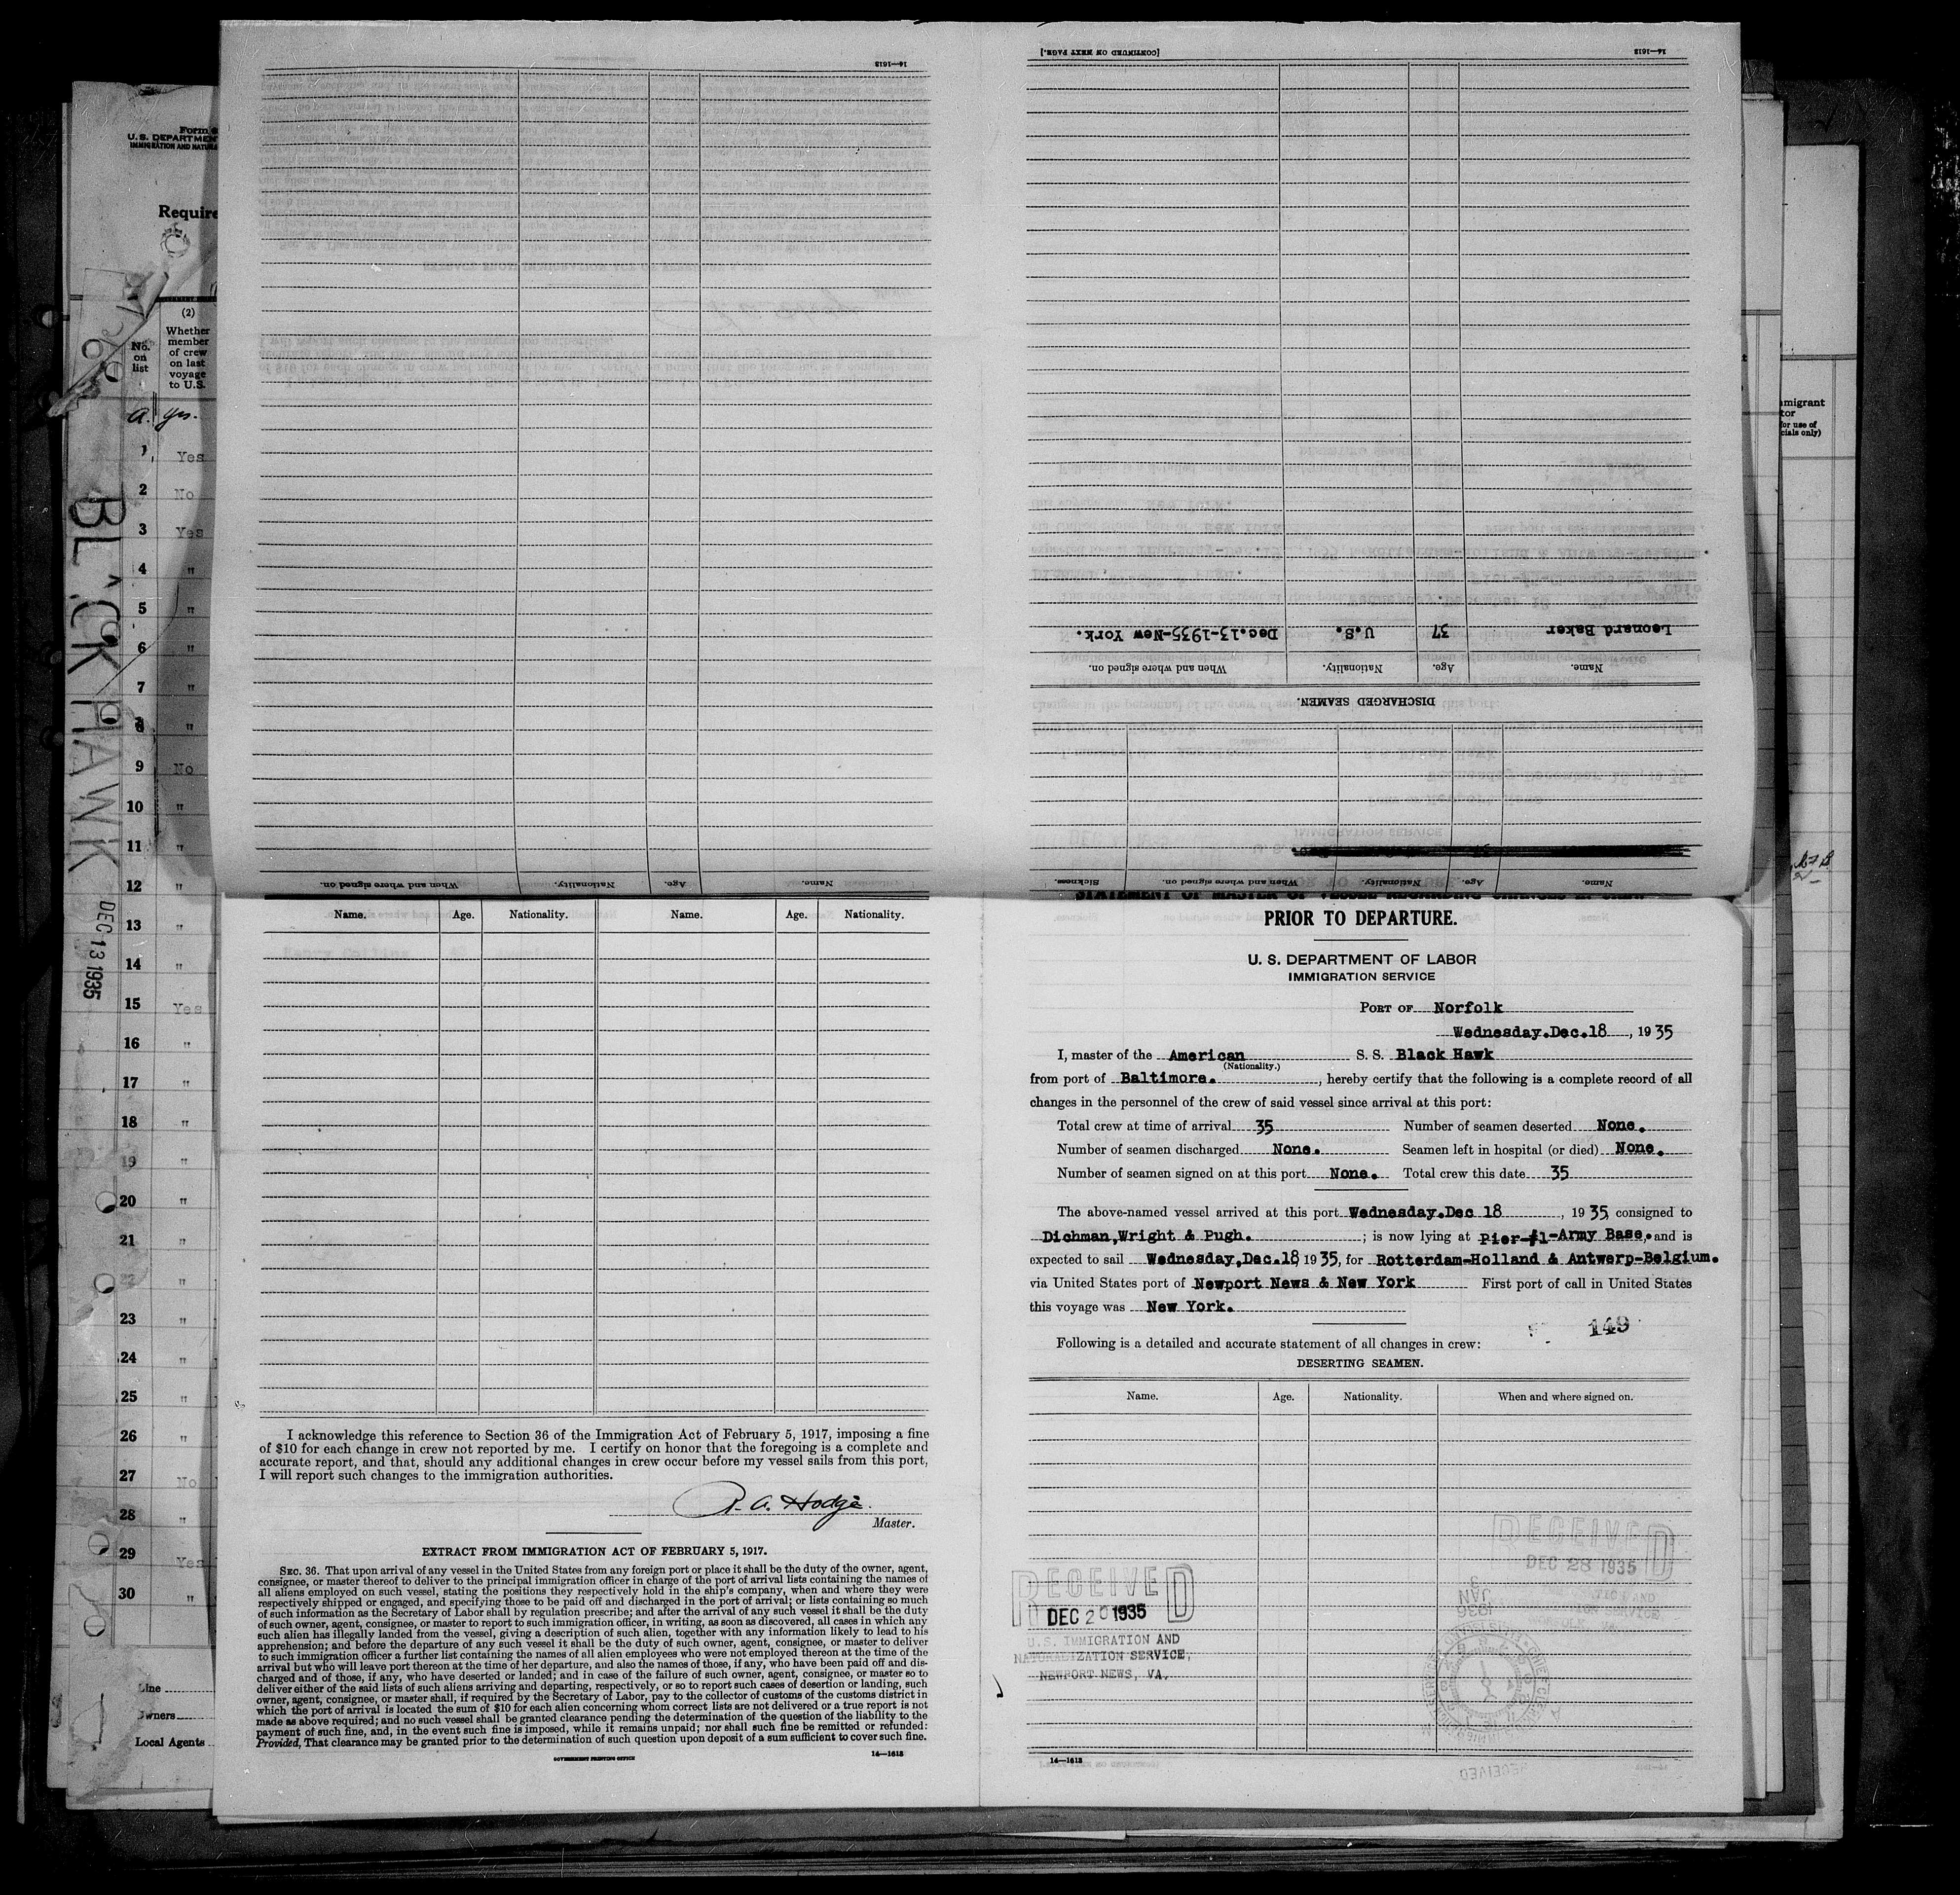 Form
U. S. DEPARTMEN
IMMIGRATION AND NATURA
Require
No.
on
list
(2)
Whether
member
of crew
on last
voyage
to U.S.
a. yes.
1 Yes
2 No
3 Yes
4 "
5 "
6 "
7 "
8 "
9 No
10 "
11 "
12 "
13 "
14 "
15 Yes
16 "
17 "
18 "
19 "
20 "
21 "
22 "
23 "
24 "
25 "
26 "
27 No
28 "
29 Yes
30 "
Line
Owners
Local Agents
BL^CK HAWK
DEC 13 1935
14—1613
Name. Age. Nationality. When and where signed on.
[CONTINUED ON NEXT PAGE.]
14—1613
Name. Age. Nationality. When and where signed on. Sickness.
DISCHARGED SEAMEN.
Name. Age. Nationality. When and where signed on.
Leonard Baker 37 U.S. Dec.13-1935-New York.
migrant
tor
for use of
cials only)
Name. Age. Nationality. Name. Age. Nationality.
I acknowledge this reference to Section 36 of the Immigration Act of February 5, 1917, imposing a fine
of $10 for each change in crew not reported by me. I certify on honor that the foregoing is a complete and
accurate report, and that, should any additional changes in crew occur before my vessel sails from this port,
I will report such changes to the immigration authorities.
R. A. Hodge.
Master.
EXTRACT FROM IMMIGRATION ACT OF FEBRUARY 5, 1917.
SEC. 36. That upon arrival of any vessel in the United States from any foreign port or place it shall be the duty of the owner, agent,
consignee, or master thereof to deliver to the principal immigration officer in charge of the port of arrival lists containing the names of
all aliens employed on such vessel, stating the positions they respectively hold in the ship's company, when and where they were
respectively shipped or engaged, and specifying those to be paid off and discharged in the port of arrival; or lists containing so much
of such information as the Secretary of Labor shall by regulation prescribe; and after the arrival of any such vessel it shall be the duty
of such owner, agent, consignee, or master to report to such immigration officer, in writing, as soon as discovered, all cases in which any
such alien has illegally landed from the vessel, giving a description of such alien, together with any information likely to lead to his
apprehension; and before the departure of any such vessel it shall be the duty of such owner, agent, consignee, or master to deliver
to such immigration officer a further list containing the names of all alien employees who were not employed thereon at the time of the
arrival but who will leave port thereon at the time of her departure, and also the names of those, if any, who have been paid off and dis-
charged and of those, if any, who have deserted or landed; and in case of the failure of such owner, agent, consignee, or master so to
deliver either of the said lists of such aliens arriving and departing, respectively, or so to report such cases of desertion or landing, such
owner, agent, consignee, or master shall, if required by the Secretary of Labor, pay to the collector of customs of the customs district in
which the port of arrival is located the sum of $10 for each alien concerning whom correct lists are not delivered or a true report is not
made as above required; and no such vessel shall be granted clearance pending the determination of the question of the liability to the
payment of such fine, and, in the event such fine is imposed, while it remains unpaid; nor shall such fine be remitted or refunded:
Provided, That clearance may be granted prior to the determination of such question upon deposit of a sum sufficient to cover such fine.
GOVERNMENT PRINTING OFFICE
14—1613
STATEMENT OF MASTER OF VESSEL REGARDING CHANGES IN CREW
PRIOR TO DEPARTURE.
U. S. DEPARTMENT OF LABOR
IMMIGRATION SERVICE
PORT OF Norfolk
Wednesday.Dec.18, 1935
I, master of the American S. S. Black Hawk
(Nationality.)
from port of Baltimore., hereby certify that the following is a complete record of all
changes in the personnel of the crew of said vessel since arrival at this port:
Total crew at time of arrival 35 Number of seamen deserted None.
Number of seamen discharged None. Seamen left in hospital (or died) None.
Number of seamen signed on at this port None. Total crew this date 35
The above-named vessel arrived at this port Wednesday.Dec 18, 1935, consigned to
Dichman,Wright & Pugh.; is now lying at Pier-#1-Army Base, and is
expected to sail Wednesday,Dec.18, 1935, for Rotterdam-Holland & Antwerp-Belgium.
via United States port of Newport News & New York First port of call in United States
this voyage was New York.
149
Following is a detailed and accurate statement of all changes in crew:
DESERTING SEAMEN.
Name. Age. Nationality. When and where signed on.
RECEIVED
DEC 28 1935
JAN 3 1936
RECEIVED
DEC 20 1935
U. S. IMMIGRATION AND
NATURALIZATION SERVICE,
NEWPORT NEWS, VA.
14—1613
RECEIVED